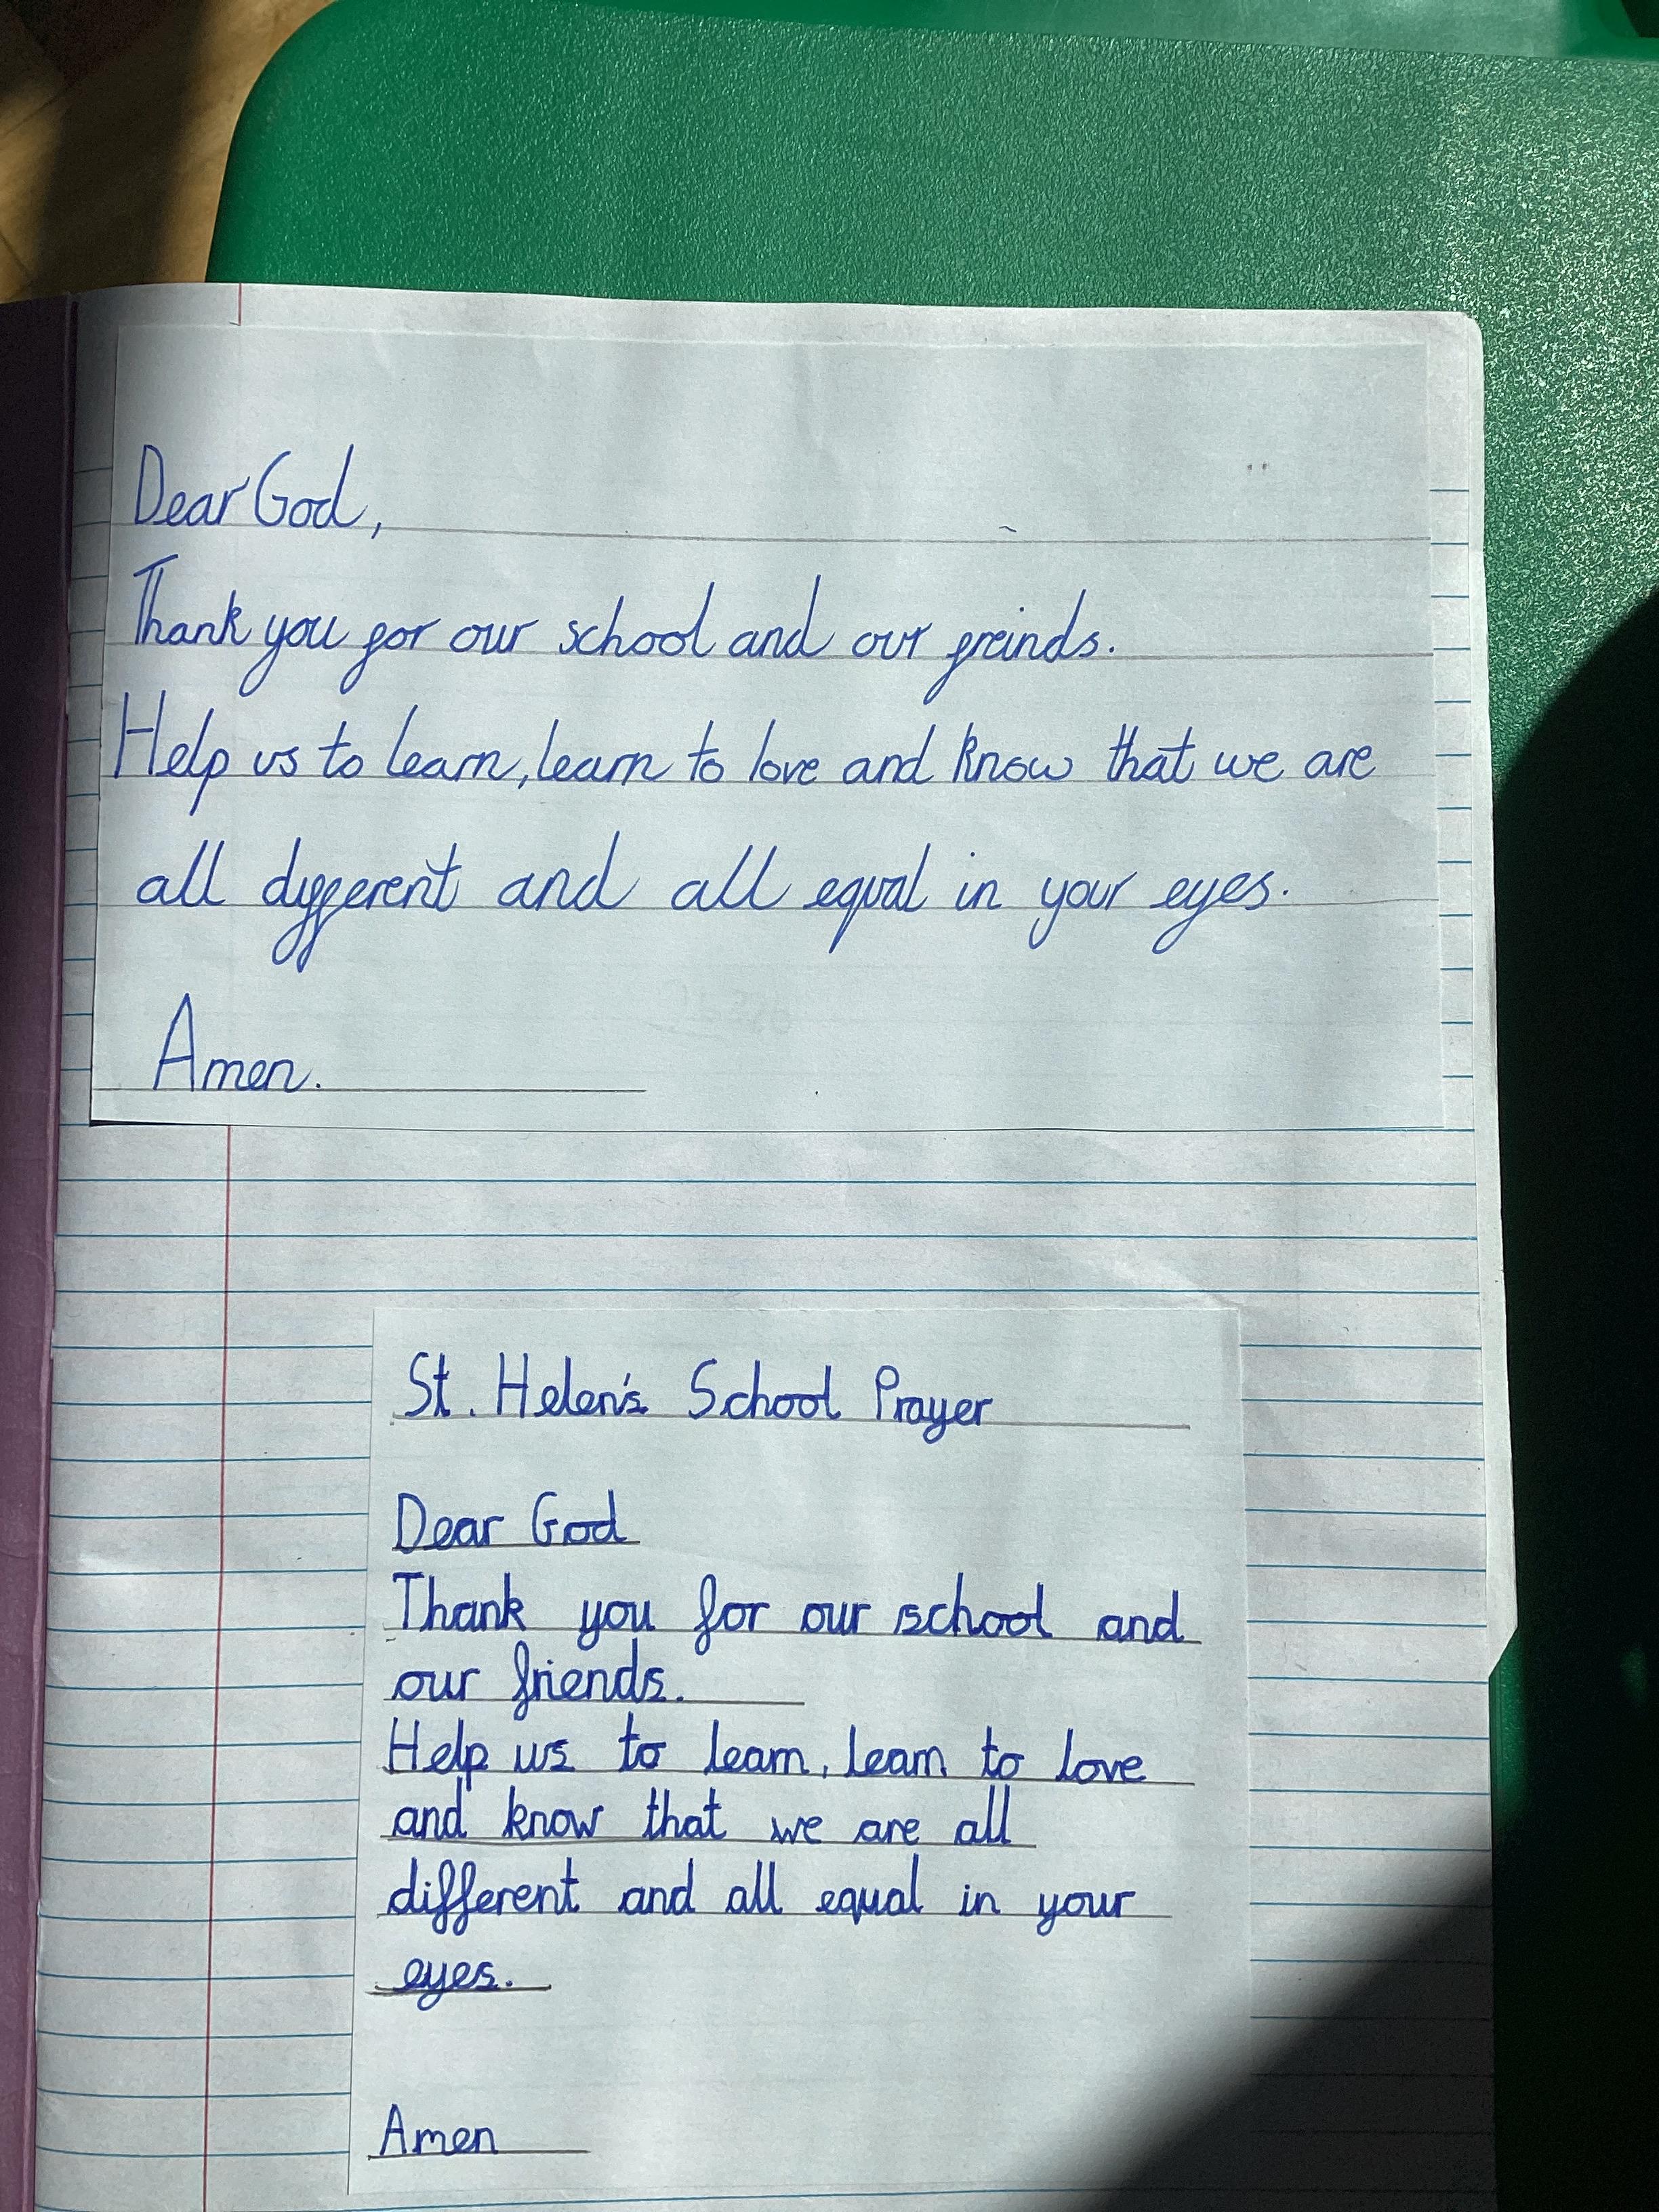 Dear God,
Thank you for our school and our freinds.
Help us to learn, learn to love and know that we are
all different and all equal in your eyes.
Amen.
St. Helen's School Prayer
Dear God
Thank you for our school and
our friends.
Help us to learn, learn to love
and know that we are all
different and all equal in your
eyes.
Amen